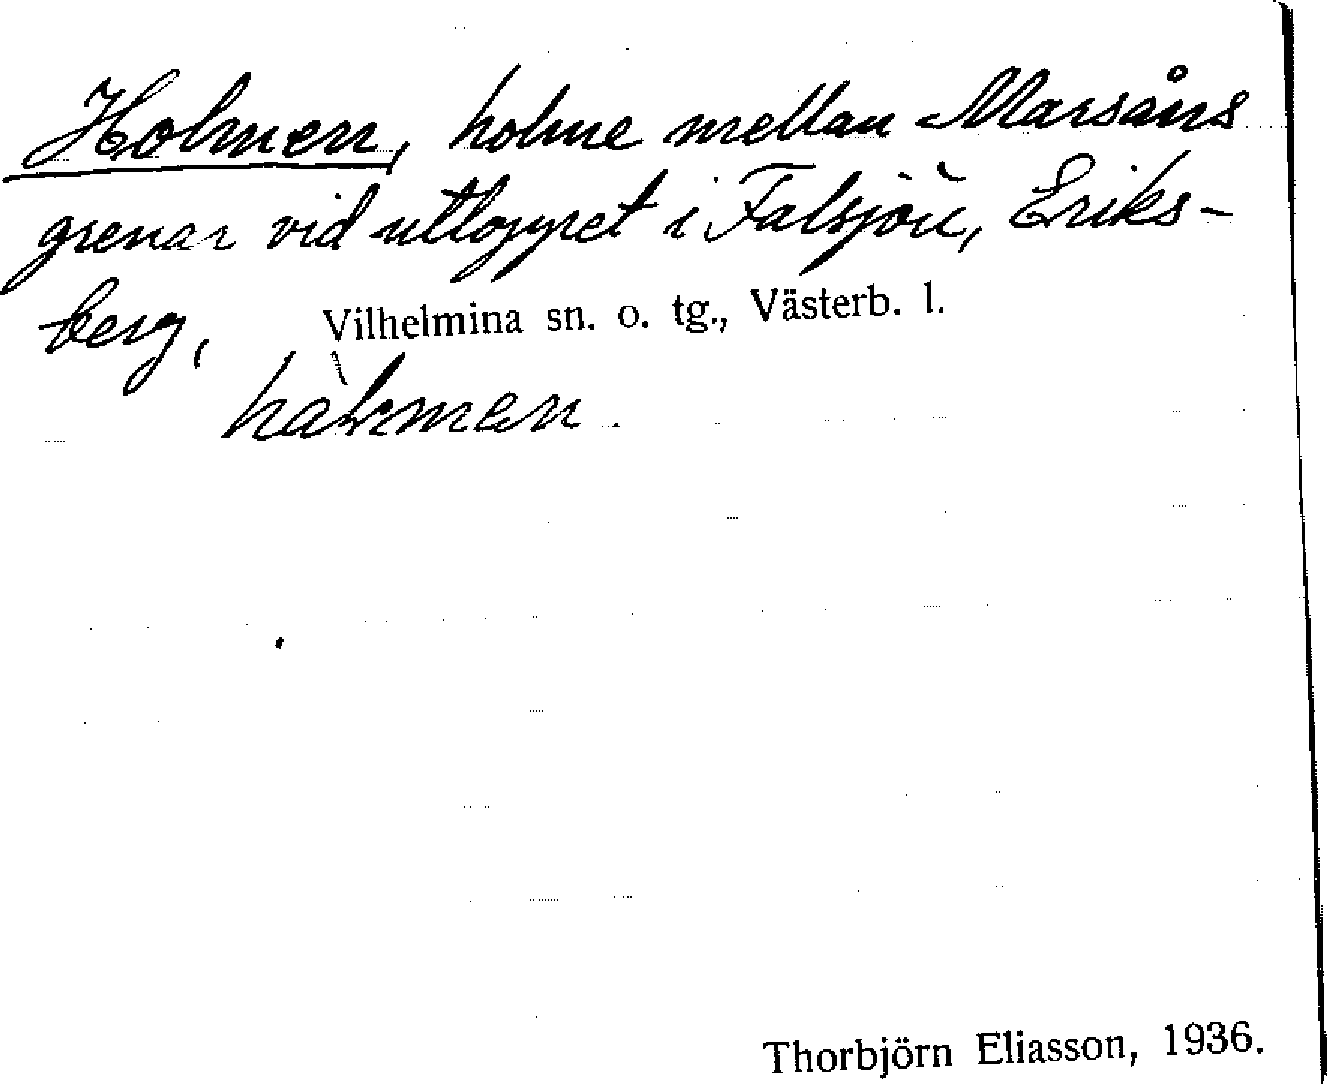 Holmen, holme mellan Marsåns
grenar vid utloppet i Falsjön, Eriks-
berg, Vilhelmina sn. o. tg., Västerb. l.
Thorbjörn Eliasson, 1936.